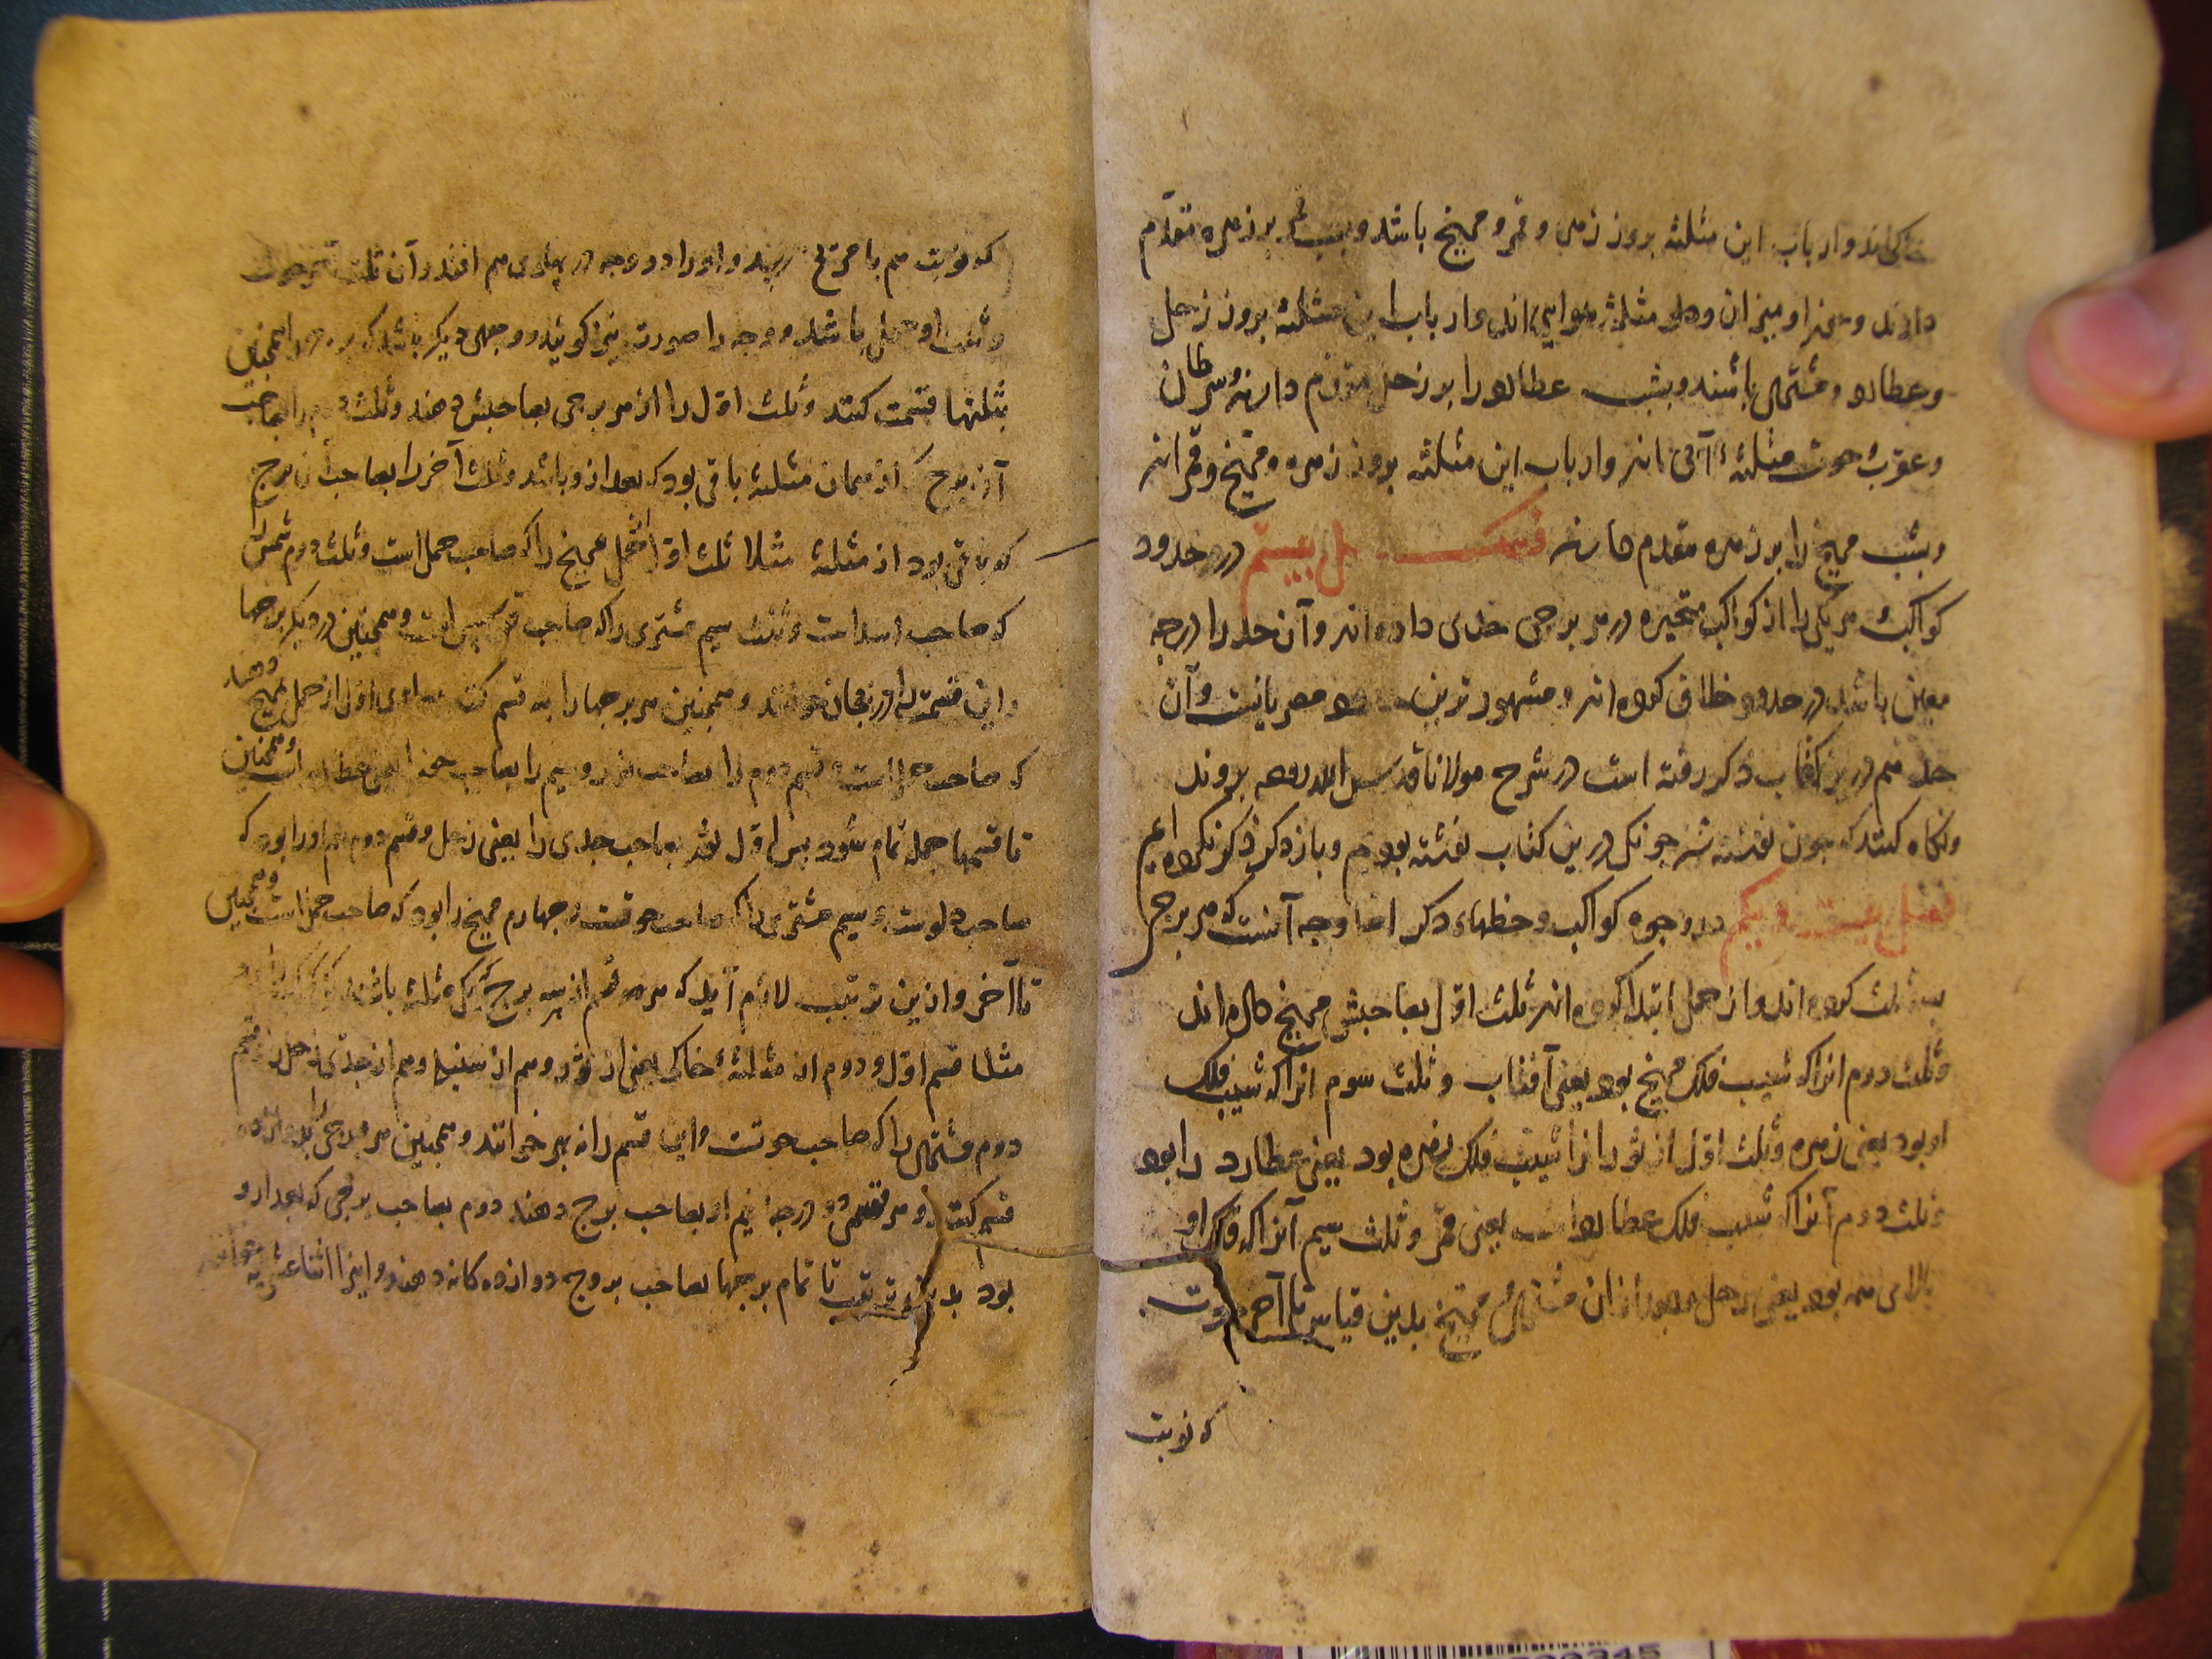 خاکی‌اند و ارباب این مثلثه بروز زهره و قمر و مریخ باشد و بشب بر زهره مقدم
دارند و جوزا و میزان و دلو مثلثهٔ هوایی‌اند و ارباب این مثلثه بروز زحل
و عطارد و مشتری باشند و بشب عطارد را بر زحل مقدم دارند و سرطان
و عقرب و حوت مثلثهٔ آبی اند و ارباب این مثلثه بروز زهره و مریخ و قمر اند
و بشب مریخ را بر زهره مقدم دارند فصل بیستم در حدود
کواکب هر یکی را از کواکب متحیره در هر برجی حدی داده‌اند و آن حد را درجه
معین باشد در حدود خلاف کرده‌اند و مشهورترین حدود مصریانست و آن
حد هم درین کتاب ذکر رفته است در شرح مولانا قدس الله روحه بروند
و نگاه کنند که چون نفشته شد جونکی درین کتاب نفشته بودیم و باز ذکر نکرده‌ایم
فصل بیست و یکم در وجوه کواکب و حظهاء دکر اما وجه آنست که هر برجی
سه ثلث کرده‌اند و از حمل ابتدا کرده‌اند ثلث اول بصاحبش مریخ داده‌اند
و ثلث دوم انرا که شیب فلک مریخ بود یعنی آفتاب و ثلث سوم انرا که شیب فلک
او بود یعنی زهره و ثلث اول از ثور انرا شیب فلک زهره بود یعنی عطارد را بود
و ثلث دوم آنرا که شیب فلک عطارد است یعنی قمر و ثلث سیم آنرا که فلک او
بالای همه بود یعنی زحل و بعد از آن مشتری و مریخ بدین قیاس تا آخر حوت
که نوبت
که نوبت هم با مریخ رسد و او را دو وجه در پهلوی هم افتد و آن ثلث آخر حوت
و ثلث اول حمل باشد و وجه را صورت نیز کویند و وجهی دیگر باشد که هر برج را همچنین
بثلثها قسمت کنند و ثلث اول را از هر برجی بصاحبش دهند و ثلث دوم را بصاحب
آن برج که از همان مثلثه باقی بود که بعد ازو باشد و ثلث آخر را بصاحب آن برج
که باقی بود از مثلثه مثلا ثلث اول از حمل مریخ را که صاحب حمل است و ثلث دوم شمس را
که صاحب اسد است و ثلث سیم مشتری را که صاحب قوس است و همچنین در دیگر برجها
و این قسمت را دریجان خوانند و همچنین هر برجها را به قسم کنند اول از حمل مریخ دهند
که صاحب حمل است و قسم دوم را بصاحب ثور و سیم را بصاحب جوزا یعنی عطارد است و همچنین
تا قسمها جمله تمام شود پس اول ثور بصاحب جدی را یعنی زحل و قسم دوم هم او را بود که
صاحب دلوست و سیم مشتری را که صاحب حوتست و چهارم مریخ را بود که صاحب حمل است و همچنین
تا آخر و ازین ترتیب لازم آید که هر قسم از سه برج که یک مثلثه باشد
مثلا قسم اول و دوم از مثلثهٔ خاکی یعنی از ثور و هم از سنبله و هم از جدی زحل را قسم
دوم مشتری را که صاحب حوتست و این قسم را نه بهر خوانند و همچنین هر برجی را بدوازده
قسم کنند و هر قسمی دو درجه و نیم او بصاحب برج دهند دوم بصاحب برجی که بعد ازو
بود بدین ترتیب تا تمام برجها بصاحب بروج دوازده کانه دهند و اینرا اثناعشریه خوانند